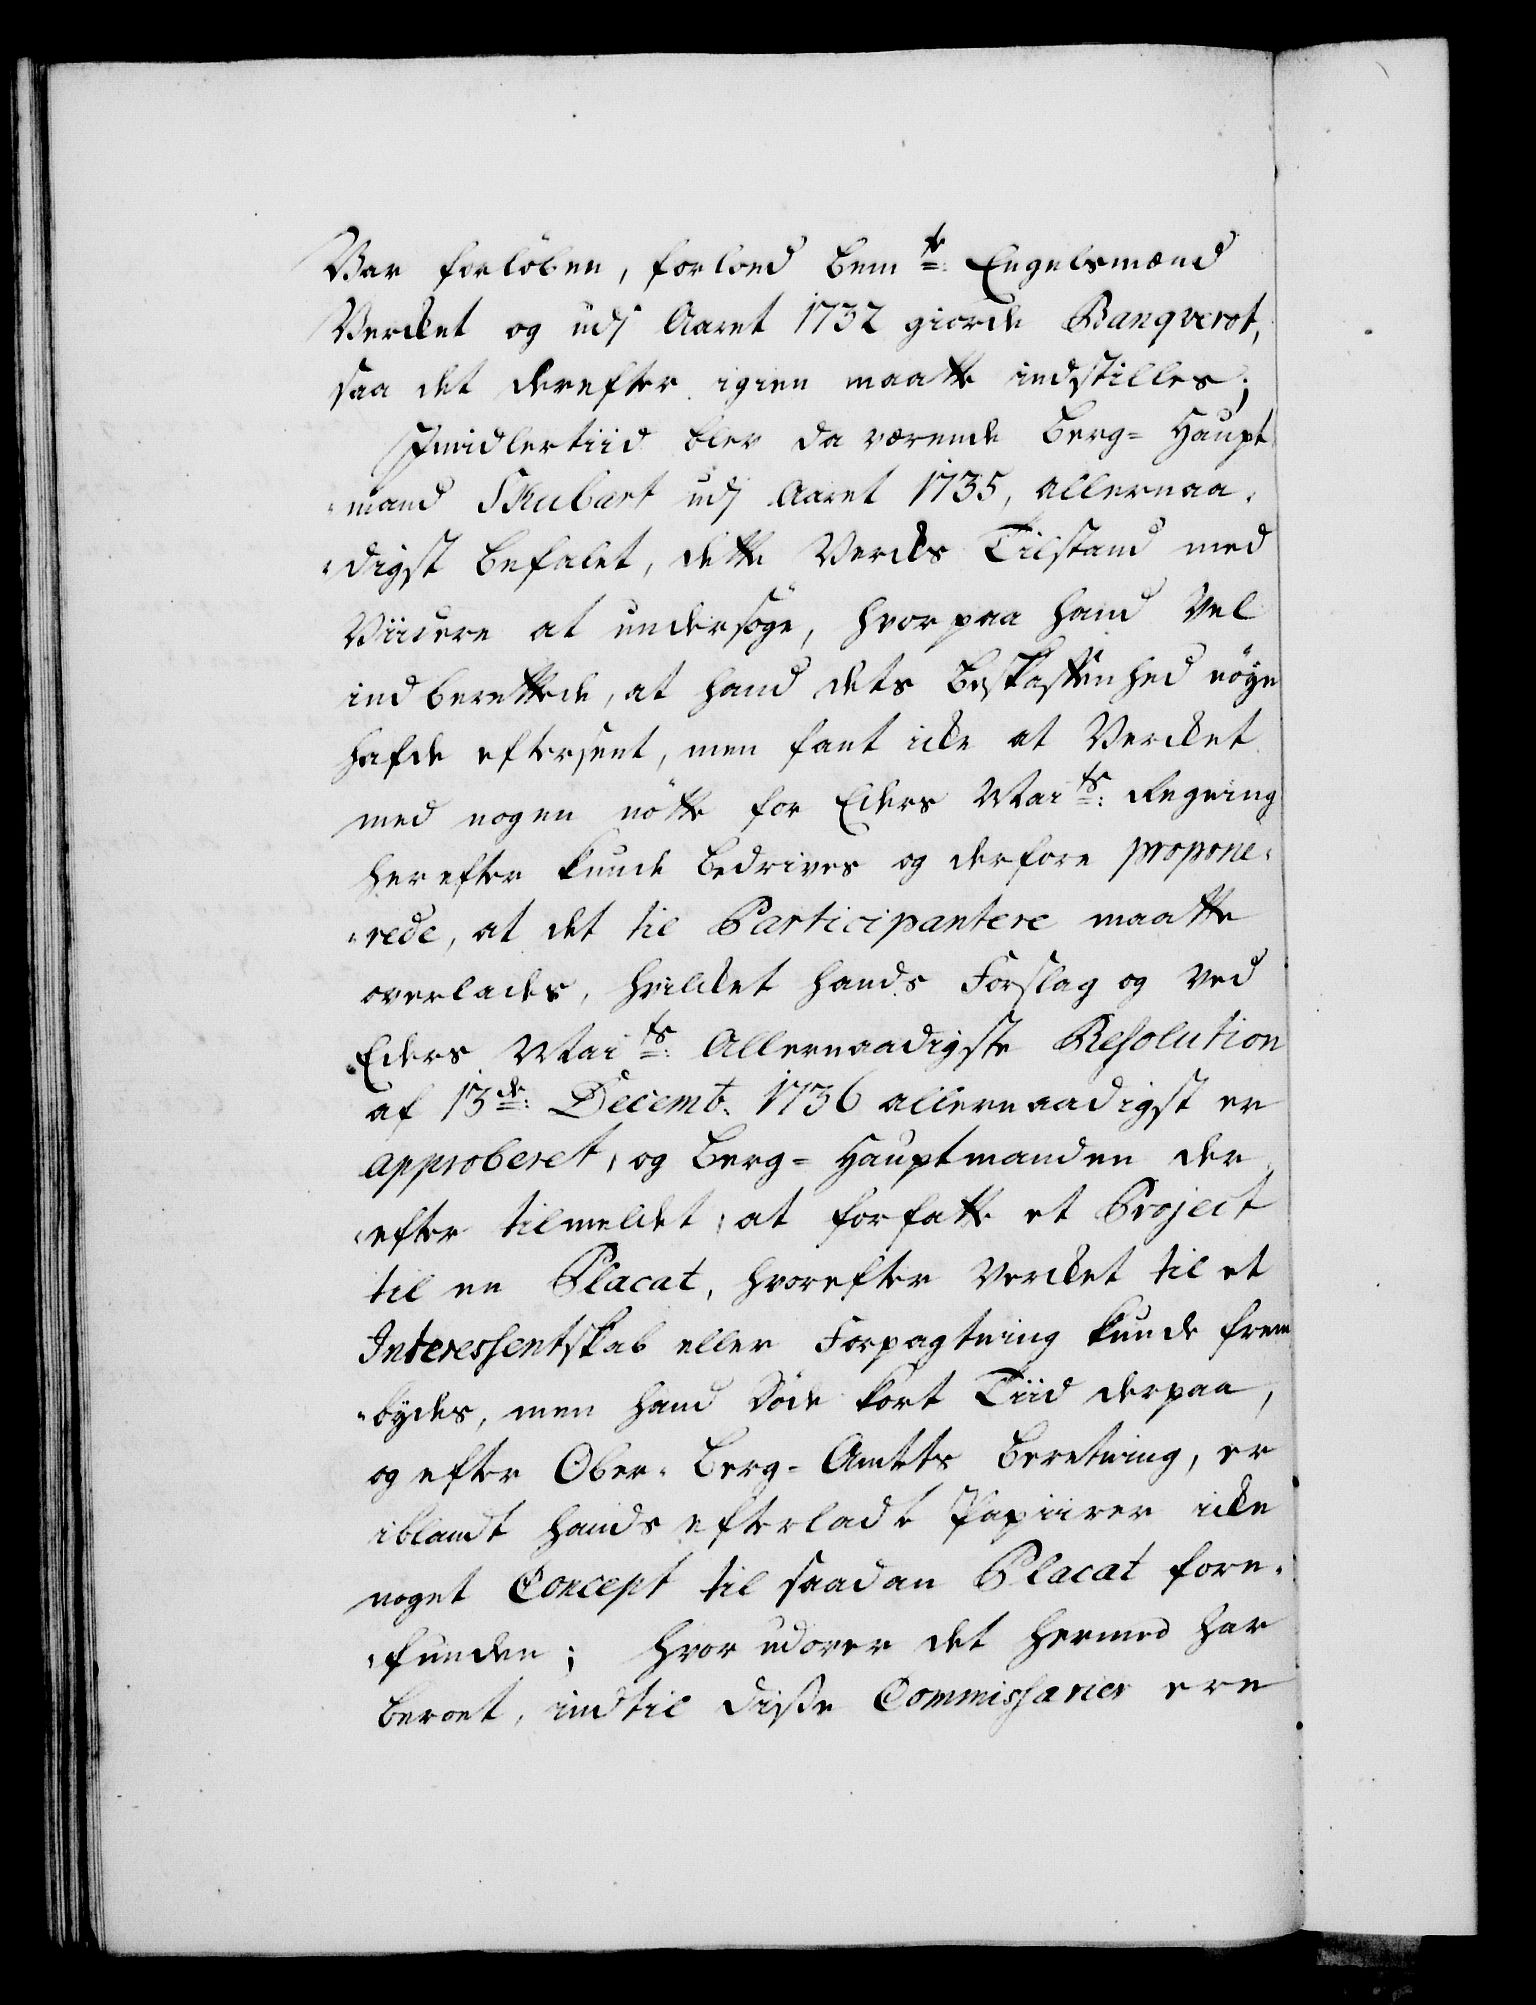 Var forløben, forlod bem.te: Engelsmænd
Verket og udj Aaret 1732 giorde Banqverot,
saa det derefter igien maatte indstilles;
Imidlertiid blev da værende Berg= Haupt
=mand Skubart udj Aaret 1735, allernaa=
=digst befalet, dette Verks Tilstand med
Viidere at undersøge, hvorpaa hand vel
indberettede, at hand dets Beskaffenhed nøye
hafde efterseet, men fant icke at Verket
med nogen nötte for Eders Mai.ts: Regning
herefter kunde bedrives og derfore propone=
=rede, at det til Participantere maatte
overlades, hvilket hands Forslag og ved
Eders Mai.ts: Allernaadigste Resolution
af 13de: Decemb. 1736 allernaadigst er
approberet, og Berg= Hauptmanden der
=efter tilmeldt, at forfatte et Project
til en Placat, hvorefter Verket til et
Interessentskab eller Forpagtning kunde frem
=bydes, men hand døde kort Tiid derpaa,
og efter Ober= Berg= Amtets Beretning, er
iblandt hands efterladte Papiirer icke
noget Concept til saadan Placat fore=
=funden; hvorudover det hermed har
beroet, indtil disse Commissarier ere